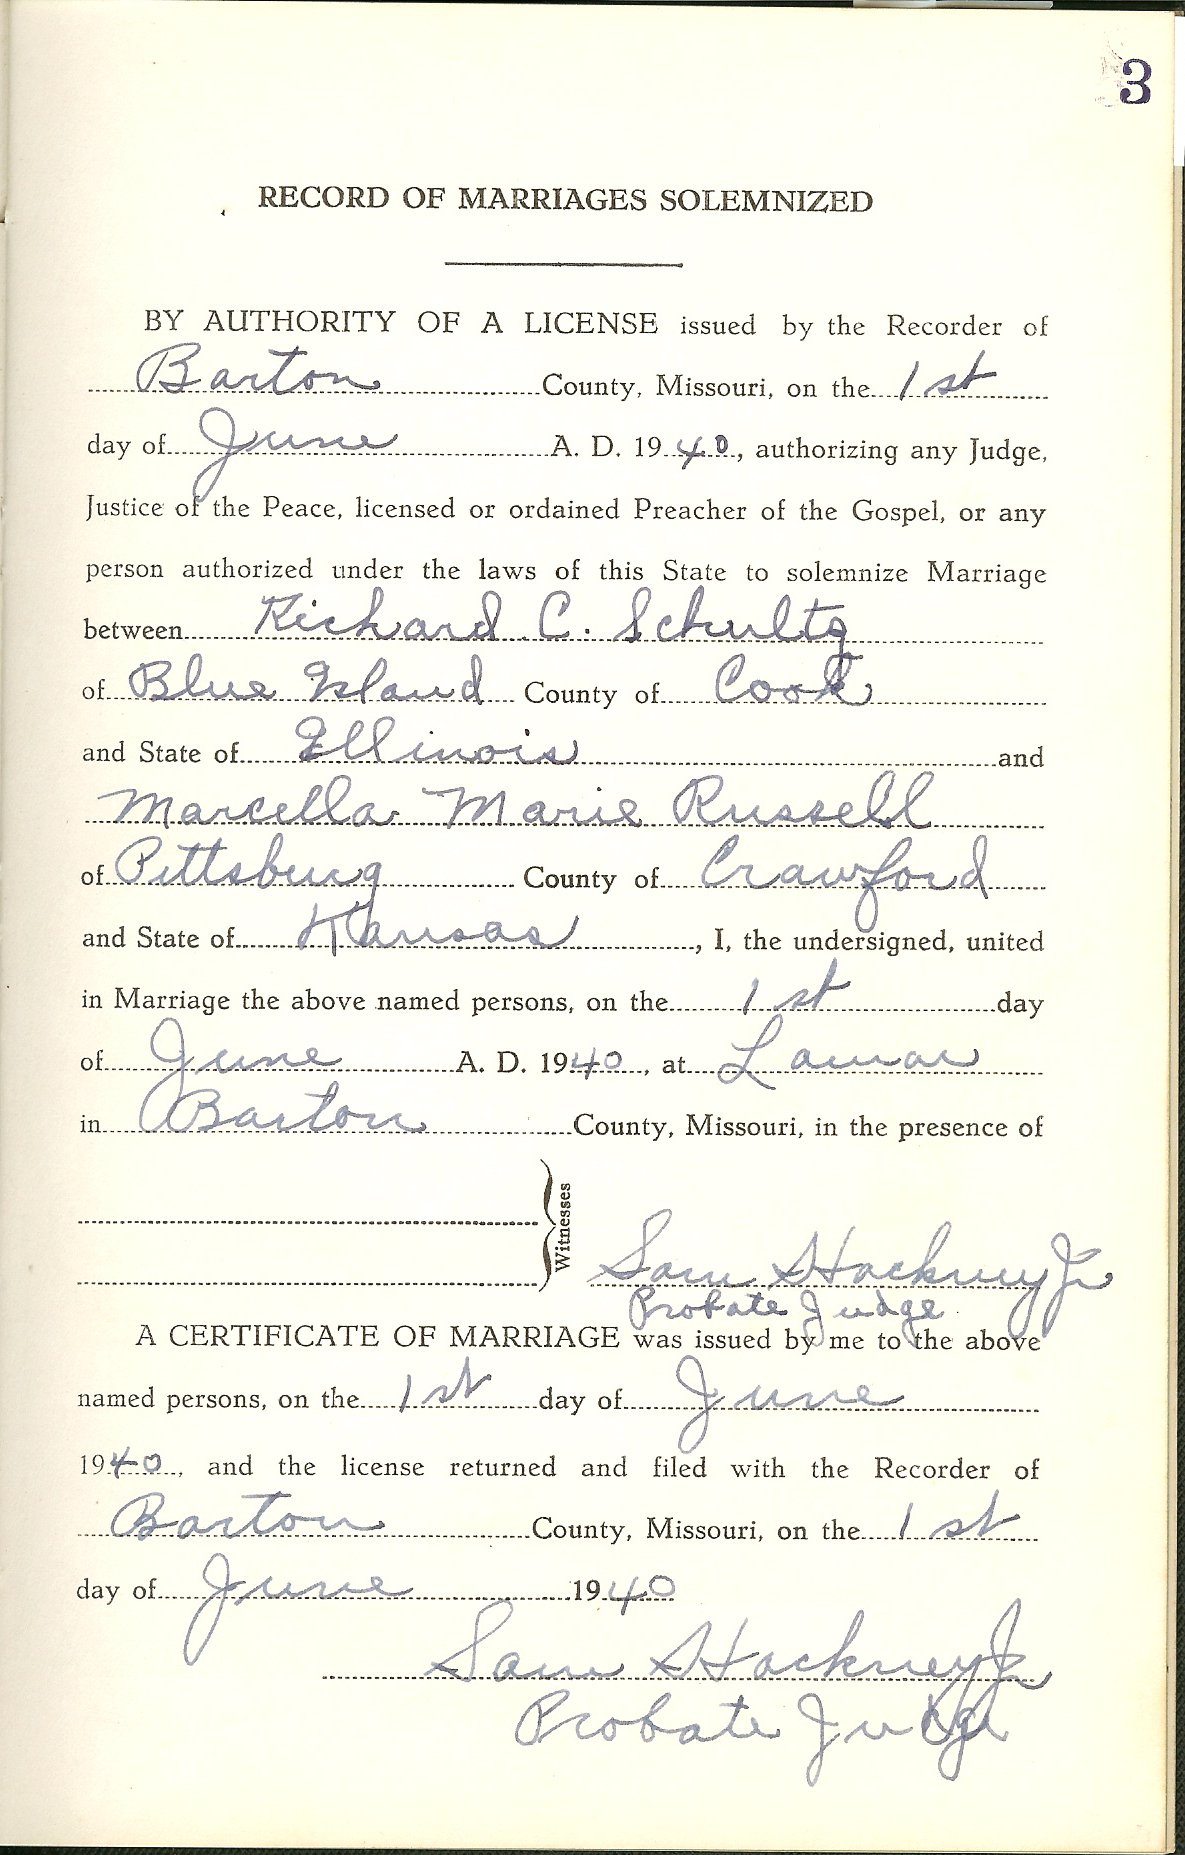 3
RECORD OF MARRIAGES SOLEMNIZED
BY AUTHORITY OF A LICENSE issued by the Recorder of
Barton County, Missouri, on the 1st
day of June A. D. 1940, authorizing any Judge,
Justice of the Peace, licensed or ordained Preacher of the Gospel, or any
person authorized under the laws of this State to solemnize Marriage
between Richard C. Schultz
of Blue Island County of Cook
and State of Illinois and
Marcella Marie Russell
of Pittsburg County of Crawford
and State of Kansas, I, the undersigned, united
in Marriage the above named persons, on the 1st day
of June A. D. 1940, at Lamar
in Barton County, Missouri, in the presence of
Witnesses
Sam Hackney Jr
Probate Judge
A CERTIFICATE OF MARRIAGE was issued by me to the above
named persons, on the 1st day of June
1940, and the license returned and filed with the Recorder of
Barton County, Missouri, on the 1st
day of June 1940
Sam Hackney Jr
Probate Judge